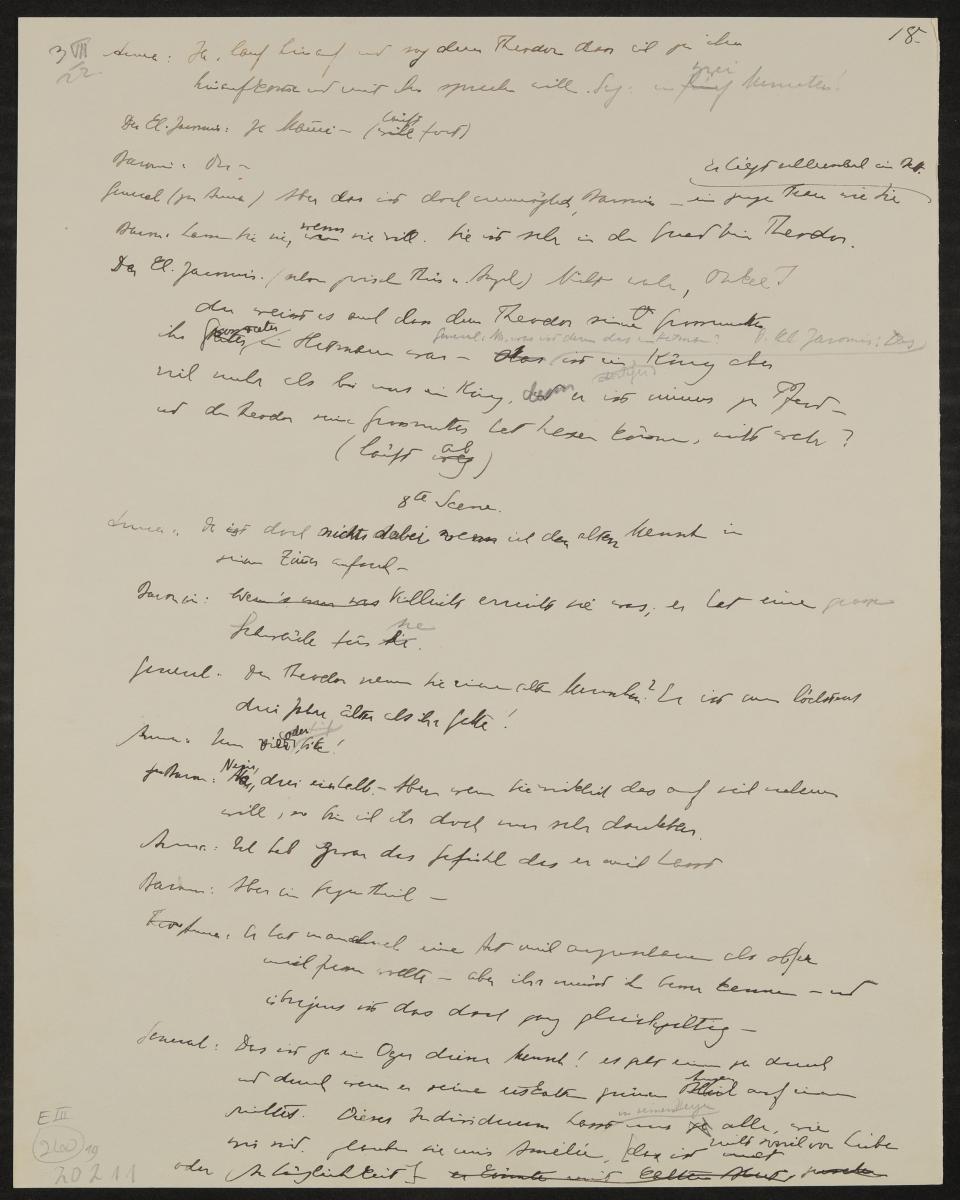 18.
3 VII 22
Anna: Ja, lauf hinauf und sag dem Theodor dass ich zu ihm
hinaufkomm und mit ihm sprechen will. Sag: in fünf zwei Minuten!
Der Kl. Jaromir: Ja Mami – (will läuft fort)
Baronin: Du –
er liegt vollkommen im Bett.
General (zu Anna) Aber das ist doch unmöglich, Baronin – ein junge Frau wie Sie
Baron: Lassen Sie sie, wenn sie will. Sie ist sehr in der Gnad beim Theodor.
Der Kl. Jaromir. (schon zwischen Thür u. Angel) Nicht wahr, Onkel!
du weisst es auch dass dem Theodor seine Grossmutter
General: Was ist denn das ein Hetman? D. Kl Jaromir: Das
ihr Grossvater ein Hetmann war – das ist ein König aber
viel mehr als bei uns ein König, denn er ist immer zu Pferd –
und dem Theodor seine Grossmutter hat hexen können, nicht wahr?
(läuft weg ab)
8te Scene.
Anna: Da ist doch nichts dabei wenn ich den alten Mensch in
seinem Zimmer aufsuch –
Baronin: Vielleicht erreicht sie was, er hat eine grosse
Schwäche für sie.
General: Den Theodor nennen Sie einen alten Menschen? Er ist um höchstens
drei Jahre älter als ihr Gatte!
Anna: Um vier oder fünf, bitte!
zu Baron: Nein, drei einhalb. – Aber wenn Sie wirklich das auf sich nehmen
will, so bin ich ihr doch nur sehr dankbar.
Anna: Ich hab zwar das Gefühl das er mich hasst
Baron: Aber im Gegentheil –
Anna: Er hat manchmal eine Art mich anzuschauen als ob er
mich fressen wollte – aber ihr müsst ihn besser kennen – und
übrigens ist das doch ganz gleichgiltig –
General: Das ist ja ein Oger dieser Mensch! es geht einem ja durch
und durch wenn er seine eiskalten grünen Augen auf einen
richtet. Dieses Individuum hasst uns in seinem Herzen ja alle, wie
wir sind. glauben Sie mir Amelie, [das ist nicht soviel von Liebe
oder Anhänglichkeit]
E III
200 19
20211